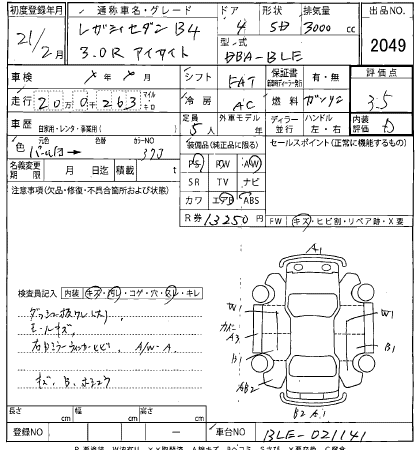 初度登録年月 通称車名・グレード ドア 形状 排気量 出品NO.
21/2月 レガシィセダン B4 4 SD 3000cc 2049
3.0R アイサイト 型式 DBA-BLE
車検 × 年 × 月 シフト FAT 保証書 有・無 評価点
走行 20万0千263 マイル キロ 冷房 AC 燃料 ガソリン 3.5
車歴 自家用・レンタ・事業用( ) 定員 5人 外車モデル 年 ディーラー 並行 ハンドル 左・右 内装評価 D
色 元色 パール白 → 色替 カラーNO 37J 装備品(純正品に限る) セールスポイント(正常に機能するもの)
名義変更期限 月 日迄 積載 t PS PW AW
注意事項(欠品・修復・不具合箇所および状態) SR TV ナビ
カワ エアB ABS
R券 13250円 FW (キズ・ヒビ割・リペア跡・X要
A1
検査員記入 内装(キズ・汚レ・コゲ・穴・スレ・キレ
W1 W1
A3 B1
B1
AB2
B2 A1
ダッシュ
モールキズ
右ドミラーウィンカーヒビ A/W-A
キズ、B、
長さ cm 幅 cm 高さ cm
登録NO ー 車台NO BLE-021141